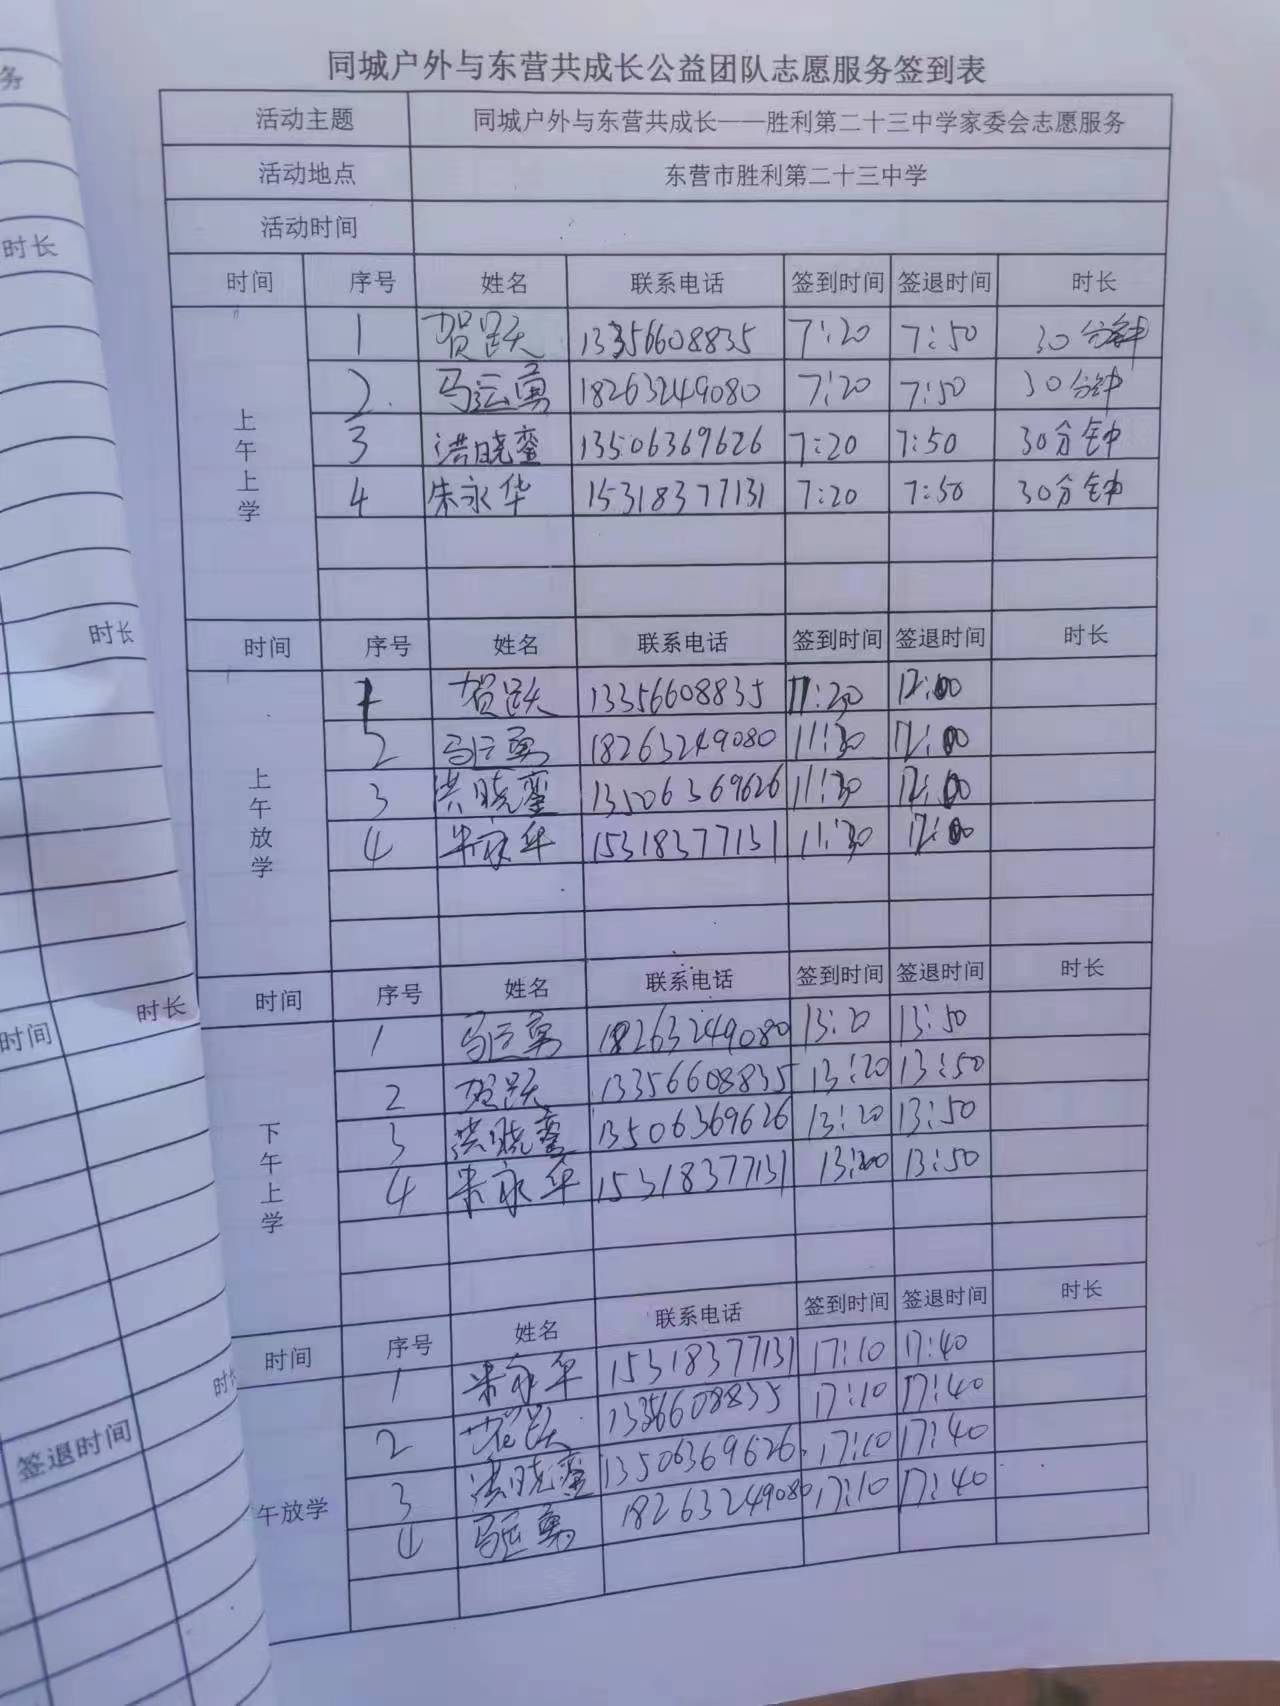 同城户外与东营共成长公益团队志愿服务签到表
活动主题 同城户外与东营共成长——胜利第二十三中学家委会志愿服务
活动地点 东营市胜利第二十三中学
活动时间
时间 序号 姓名 联系电话 签到时间 签退时间 时长
上午上学
1 贺跃 13356608835 7:20 7:50 30分钟
2 马运勇 18263249080 7:20 7:50 30分钟
3 洪晓銮 13506369626 7:20 7:50 30分钟
4 朱永华 15318377131 7:20 7:50 30分钟
时间 序号 姓名 联系电话 签到时间 签退时间 时长
上午放学
1 贺跃 13356608835 11:30 12:00
2 马运勇 18263249080 11:30 12:00
3 洪晓銮 13506369626 11:30 12:00
4 朱永华 15318377131 11:30 12:00
时间 序号 姓名 联系电话 签到时间 签退时间 时长
下午上学
1 马运勇 18263249080 13:20 13:50
2 贺跃 13356608835 13:20 13:50
3 洪晓銮 13506369626 13:20 13:50
4 朱永华 15318377131 13:20 13:50
时间 序号 姓名 联系电话 签到时间 签退时间 时长
午放学
1 朱永华 15318377131 17:10 17:40
2 贺跃 13356608835 17:10 17:40
3 洪晓銮 13506369626 17:10 17:40
4 马运勇 18263249080 17:10 17:40
务
时长
时长
时长
时间
时长
签退时间